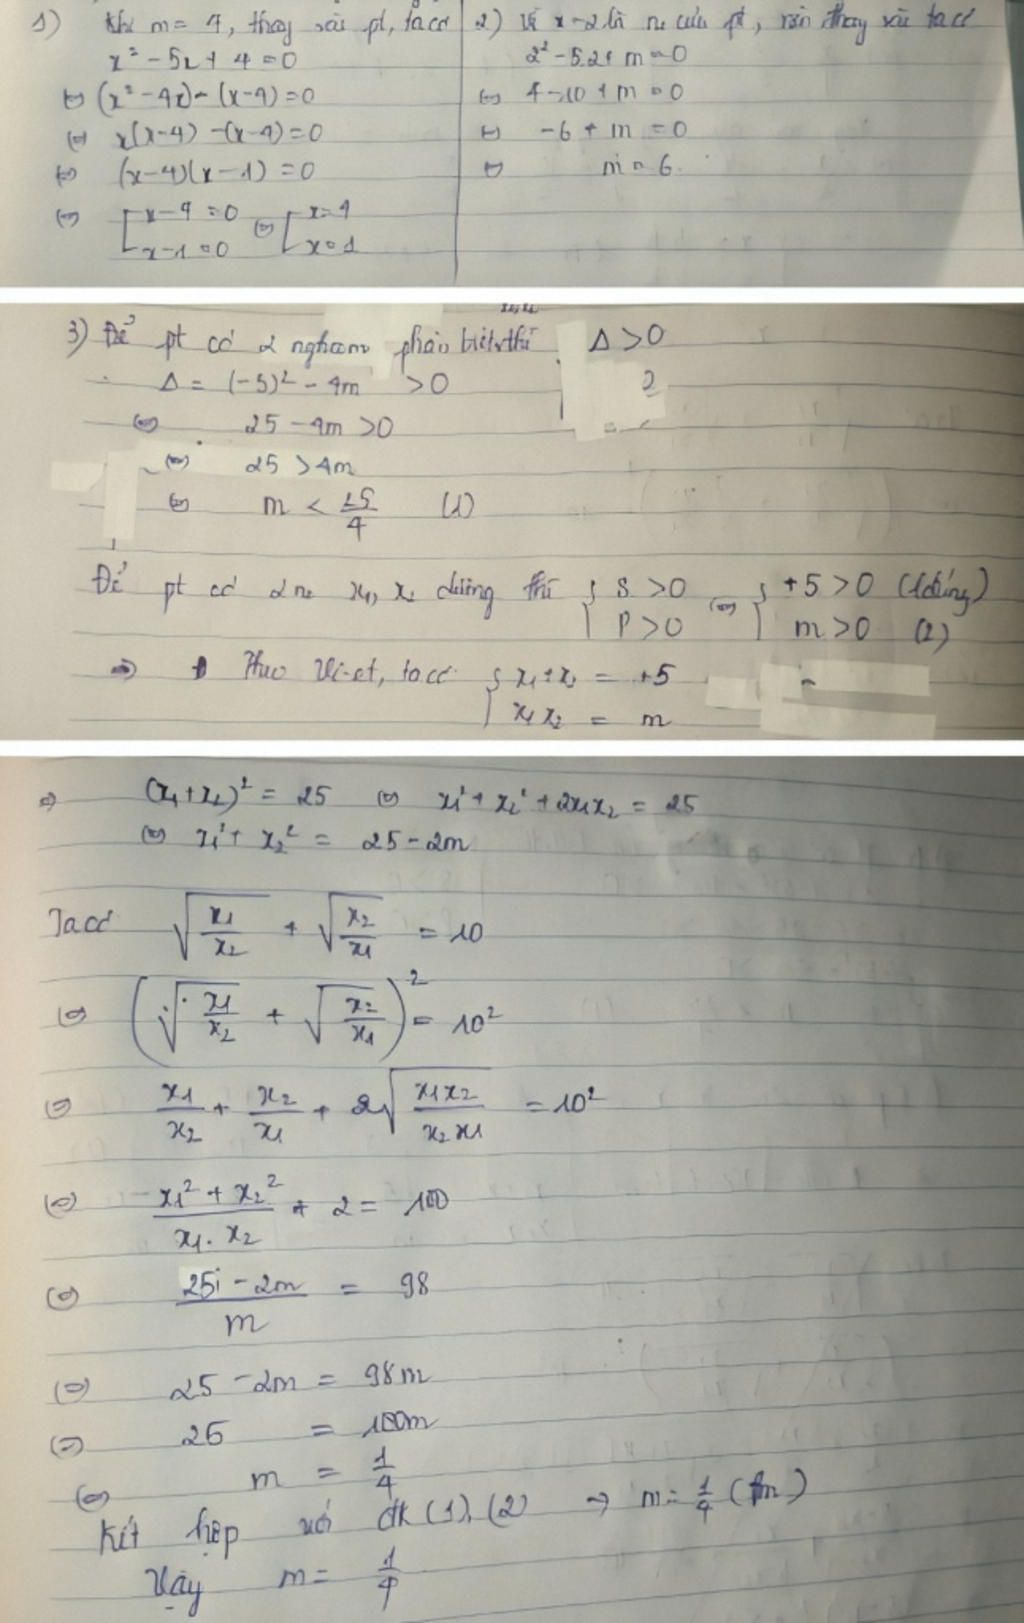 1) Khi m = 4, thay vào pt, ta có
x² - 5x + 4 = 0
⇔ (x² - 4x) - (x - 4) = 0
⇔ x(x - 4) - (x - 4) = 0
⇔ (x - 4)(x - 1) = 0
⇔ [ x - 4 = 0 ⇔ [ x = 4
x - 1 = 0 x = 1
2) Vì x = 2 là no của pt, nên thay vào ta có
2² - 5.2 + m = 0
⇔ 4 - 10 + m = 0
⇔ -6 + m = 0
⇔ m = 6.
3) Để pt có 2 nghiệm phân biệt thì Δ > 0
x₁, x₂
Δ = (-5)² - 4m > 0 2
⇔ 25 - 4m > 0
⇔ 25 > 4m
⇔ m < 25/4 (1)
Để pt có 2 no x₁, x₂ dương thì { S > 0 ⇔ { +5 > 0 (lđúng)
P > 0 m > 0 (2)
⇒ Theo Vi-et, ta có { x₁ + x₂ = +5
x₁x₂ = m
⇒ (x₁ + x₂)² = 25 ⇔ x₁² + x₂² + 2x₁x₂ = 25
⇔ x₁² + x₂² = 25 - 2m
Ta có √(x₁/x₂) + √(x₂/x₁) = 10
⇔ (√(x₁/x₂) + √(x₂/x₁))² = 10²
⇔ x₁/x₂ + x₂/x₁ + 2√(x₁x₂/x₂x₁) = 10²
⇔ (x₁² + x₂²)/(x₁.x₂) + 2 = 100
⇔ (25 - 2m)/m = 98
⇔ 25 - 2m = 98m
⇔ 25 = 100m
⇔ m = 1/4
Kết hợp với đk (1), (2) → m = 1/4 (tm)
Vậy m = 1/4